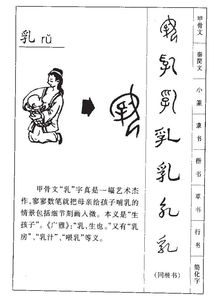 乳 rǔ
甲骨文“乳”字真是一幅艺术杰
作,寥寥数笔就把母亲给孩子哺乳的
情景包括细节刻画入微。本义是“生
孩子”。《广雅》:“乳,生也。”又有“乳
房”、“乳汁”、“喂乳”等义。
甲骨文
秦篆文
小篆
隶书
楷书
草书
行书
简化字
乳
(同楷书)